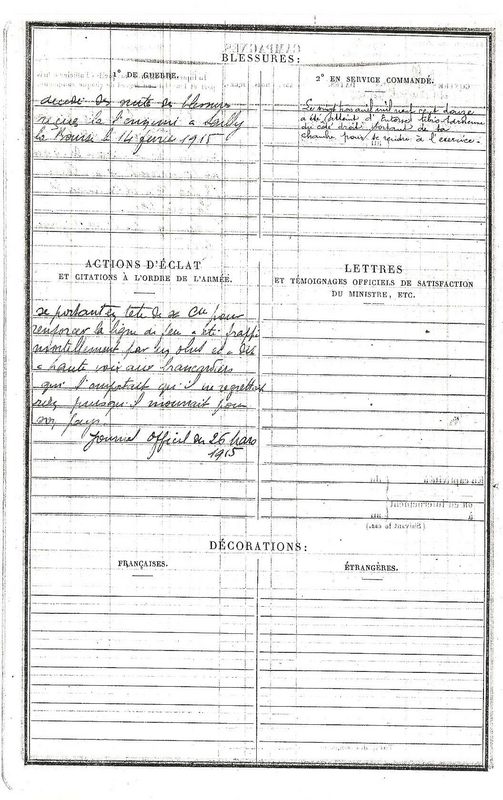 BLESSURES:
1° DE GUERRE.
décédé des suites de blessures
reçues à l'ennemi à
le 14 février 1915
2° EN SERVICE COMMANDÉ.
Le vingt mars mil neuf cent douze
a été atteint d'Entorse tibio-tarsienne
du côté droit sortant de sa
chambre pour se rendre à l'exercice.
ACTIONS D'ÉCLAT
ET CITATIONS À L'ORDRE DE L'ARMÉE.
se portant en tête de sa Cie pour
renforcer la ligne de feu a été frappé
mortellement par un obus et a dit
à haute voix aux brancardiers
qui l'emportait qu'il ne regrettait
rien puisqu'il mourrait pour
son pays
Journal Officiel du 26 Mars
1915
LETTRES
ET TÉMOIGNAGES OFFICIELS DE SATISFACTION
DU MINISTRE, ETC.
DÉCORATIONS:
FRANÇAISES.
ÉTRANGÈRES.